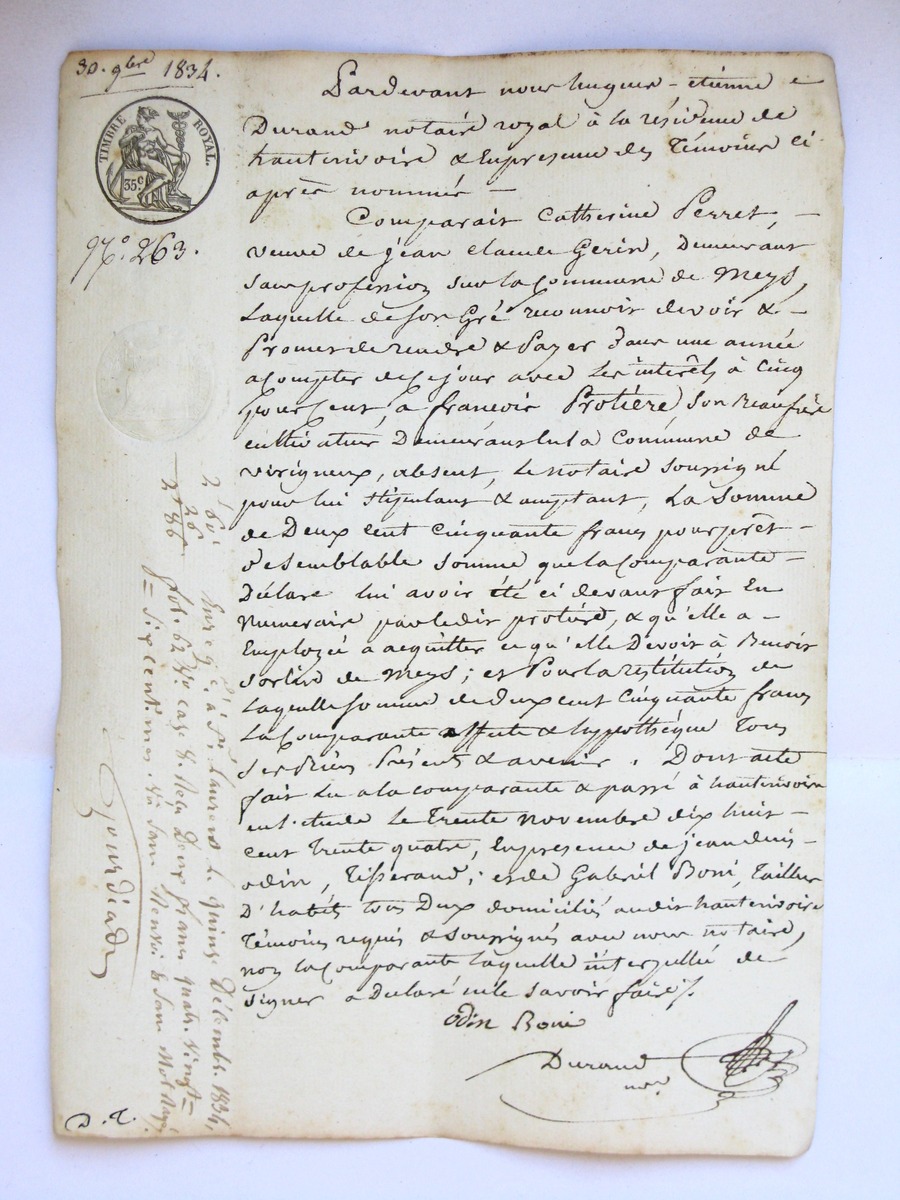 30. 9bre 1834.
TIMBRE ROYAL.
35c
N.º 263.
Pardevant nous hugues - étienne
Durand notaire royal à la résidence de
hauterivoire & En presence des Témoins ci
après nommés -
Comparait Catherine Perret, -
veuve de jean claude Gerin, Demeurant
sans profession sur la Commune de Meys,
Laquelle de son Gré reconnoit devoir & -
Promet de rendre & Payer dans une année
a compter de ce jour avec Les intérêts à Cinq
pour Cent, a françois Protière son Beaufrère
cultivateur Demeurant sur la Commune de
virigneux, absent, Le notaire soussigné
pour lui stipulant & acceptant, La somme
de Deux cent Cinquante francs pour prêt -
de semblable somme que la Comparante -
Déclare lui avoir été ci devant fait En
Numeraire par ledit protière, & qu'elle a -
Employée a acquitter ce qu'elle Devoit à Benoit
de Meys ; et Pour la restitution de
Laquelle somme de deux cent Cinquante francs
La Comparante affecte & hypothèque Tous
ses Biens Présents & avenir . Dont acte
fait Lu a la comparante & passé à hauterivoire
en l'étude Le Trente novembre dix huit -
cent Trente quatre, En presence de jean denis -
odin, Tisserand ; et de Gabriel Boni, Tailleur
D'habits tous Deux domiciliés audit hauterivoire
Témoins requis & soussignés avec nous notaire,
non la Comparante Laquelle interpellée de
signer a Déclaré ne le savoir faire ./.
odin Boni
Durand
nre
2f 60c
26
2f 86
Enregé. à St. Laurent le quinze Décembr. 1834,
fol. 62 Vo. case 8. Reçu Deux francs quatr. vingt =
= six cent.mes
Gourdiade
D. T.